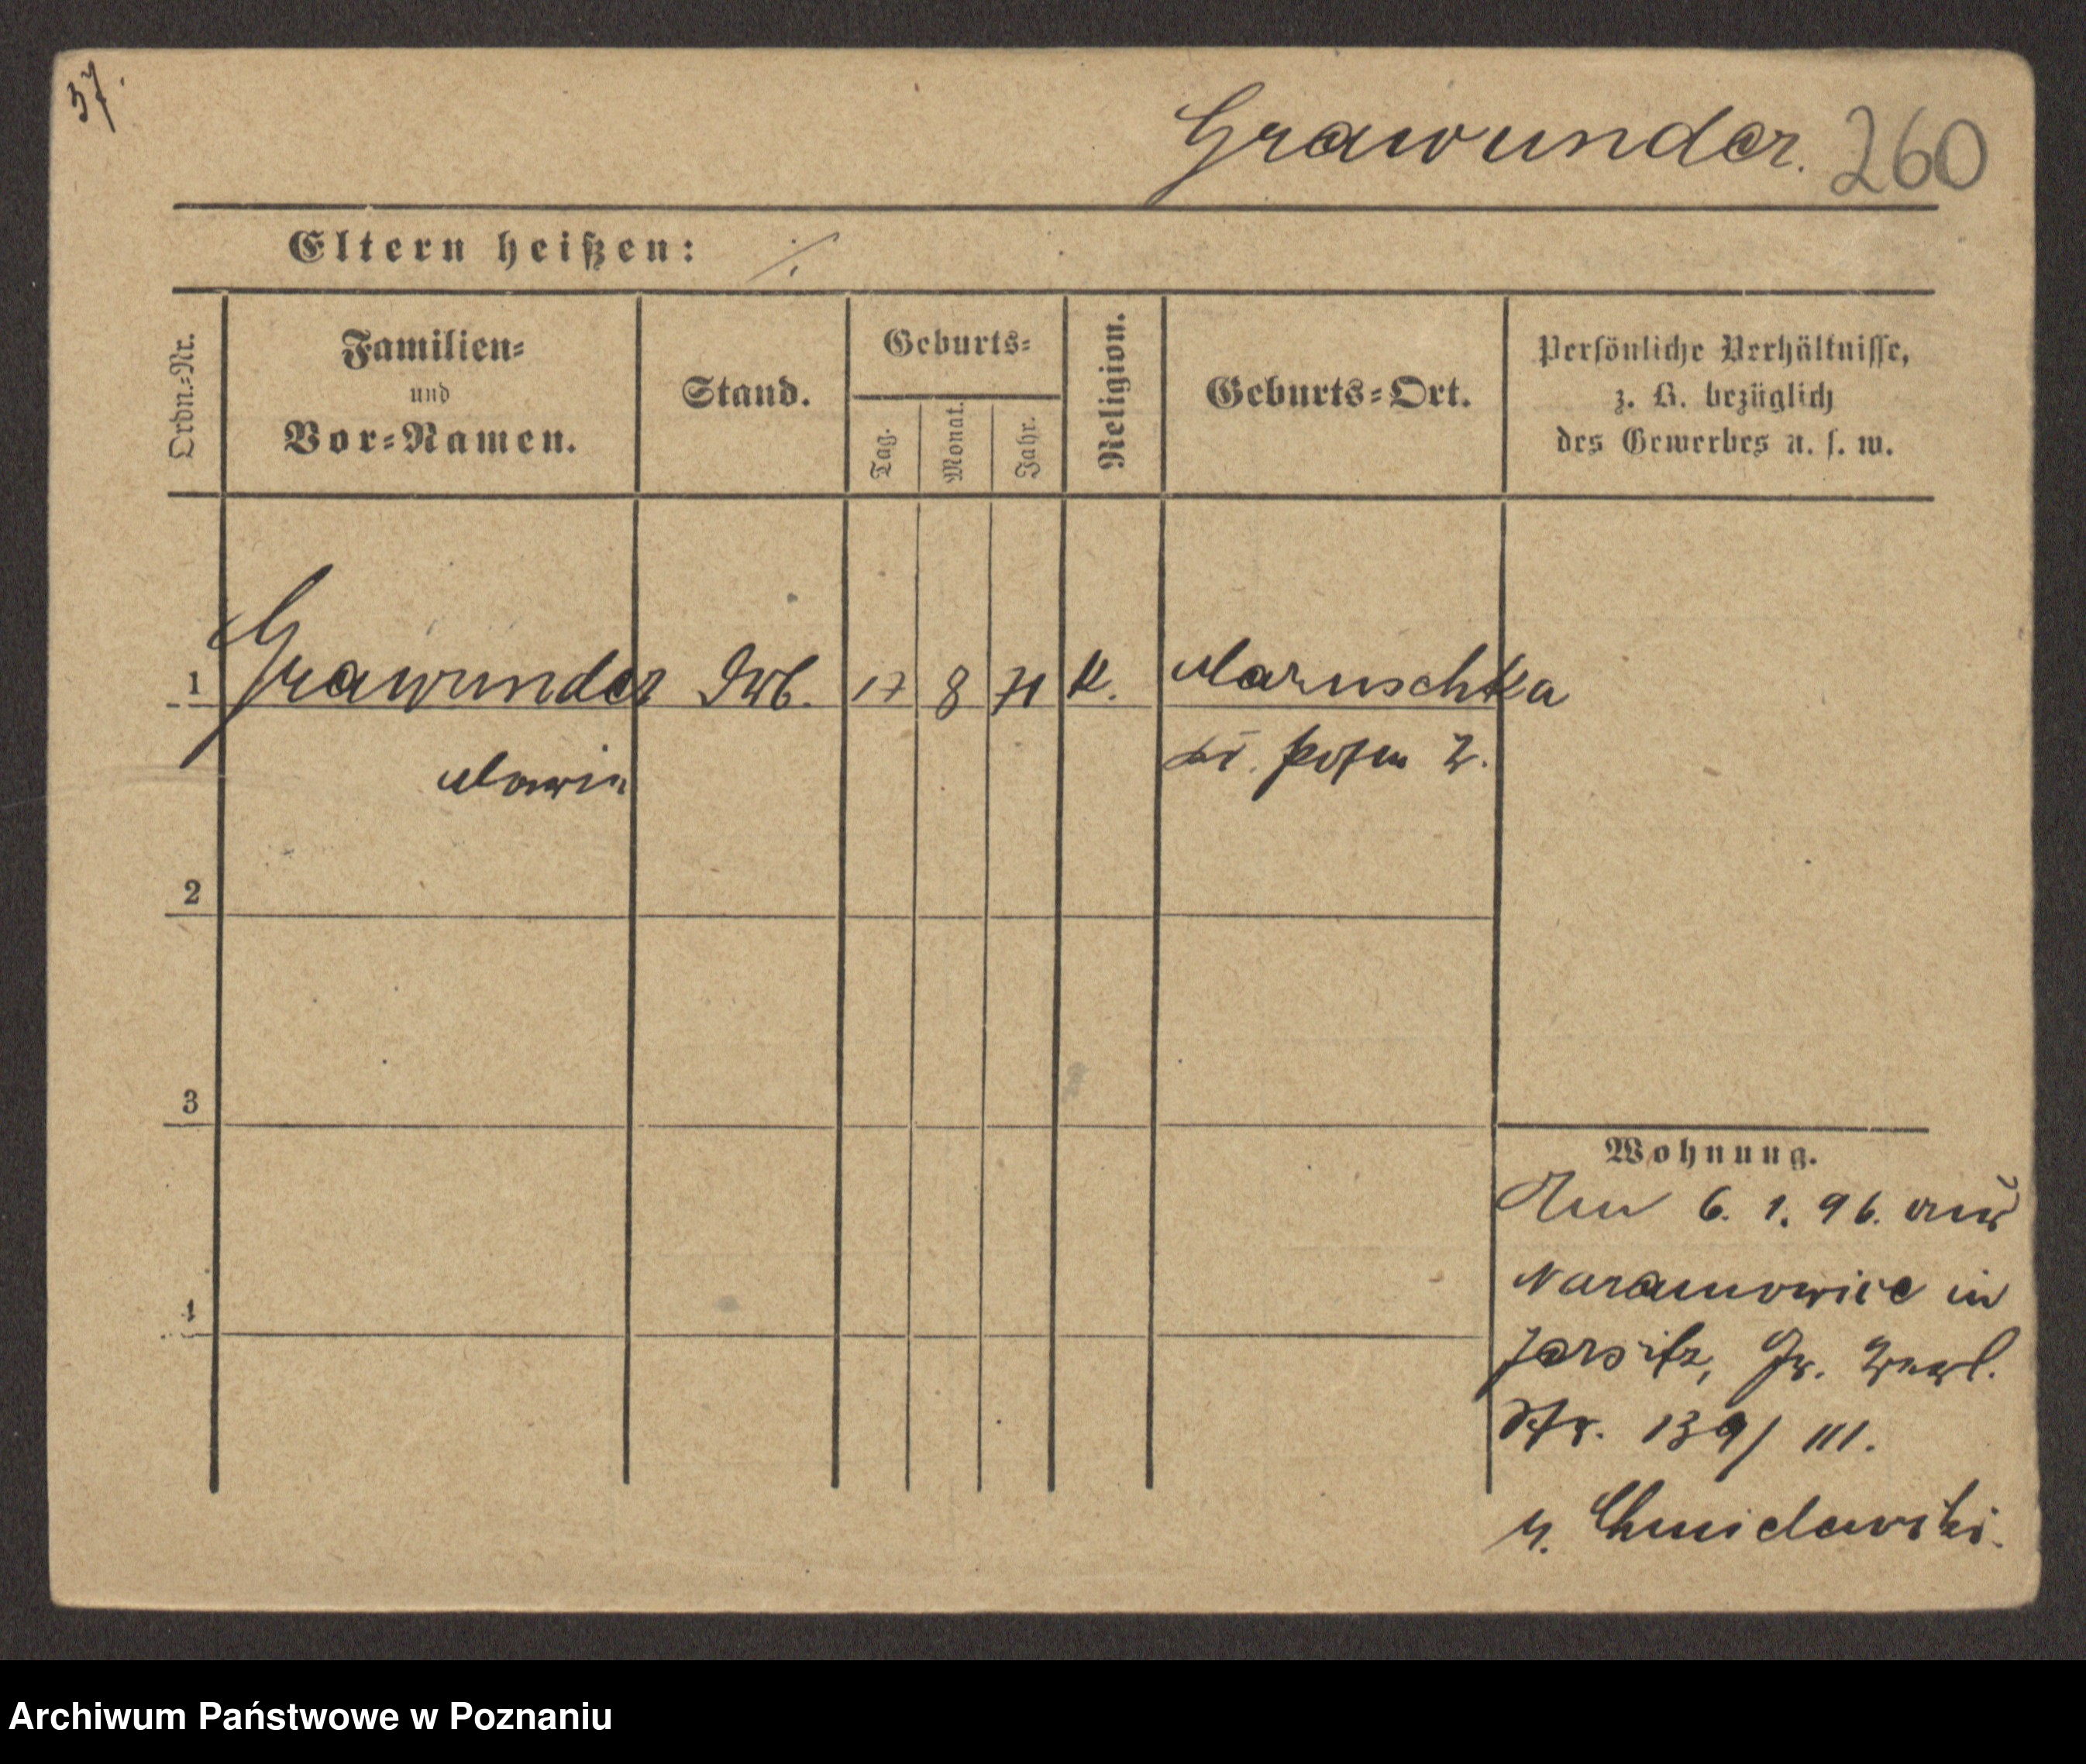 37.
Grawunder. 260
Eltern heißen: ./.
Ordn.-Nr.
Familien-
und
Vor-Namen.
Stand.
Geburts-
Tag.
Monat.
Jahr.
Religion.
Geburts-Ort.
Persönliche Verhältnisse,
z. B. bezüglich
des Gewerbes u. s. w.
1 Grawunder 17 8 71 K. Maruschka
Maria Kr. Posen W.
2
3
4
Wohnung.
Am 6. 1. 96. aus
Naramowice in
Jersitz, Gr. Berl.
Str. 139/III.
b. Chmielewski.
Archiwum Państwowe w Poznaniu